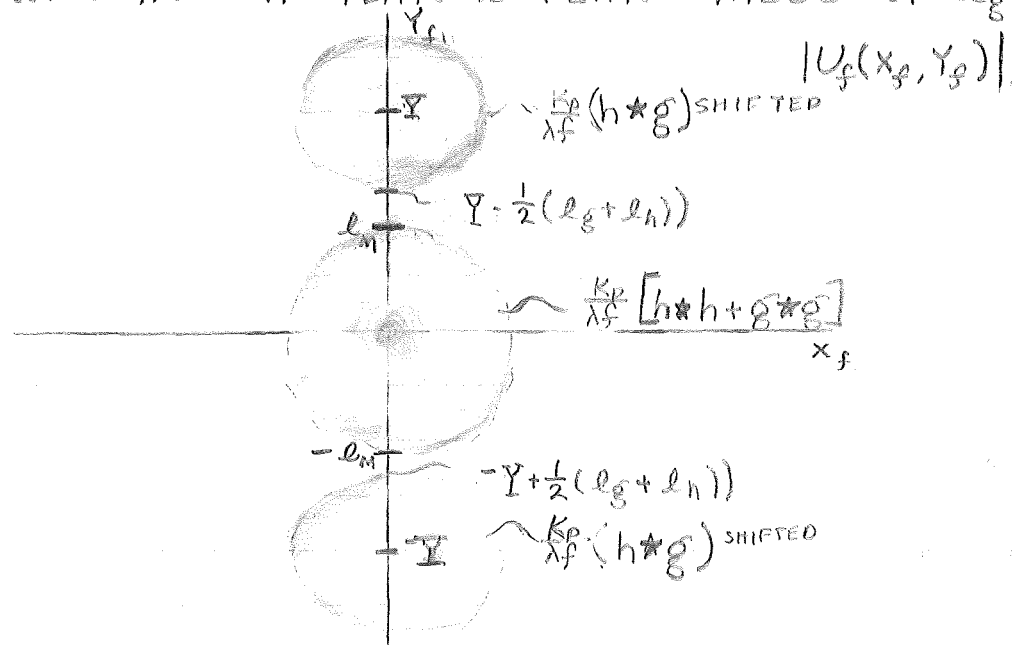 Y_f
|U_f(X_f, Y_f)|
Y
K_p/λf (h★g) SHIFTED
Y - 1/2(ℓ_g + ℓ_h))
ℓ_M
K_p/λf [h★h + g★g]
x_f
-ℓ_M
-Y + 1/2(ℓ_g + ℓ_h))
-Y
K_p/λf (h★g) SHIFTED